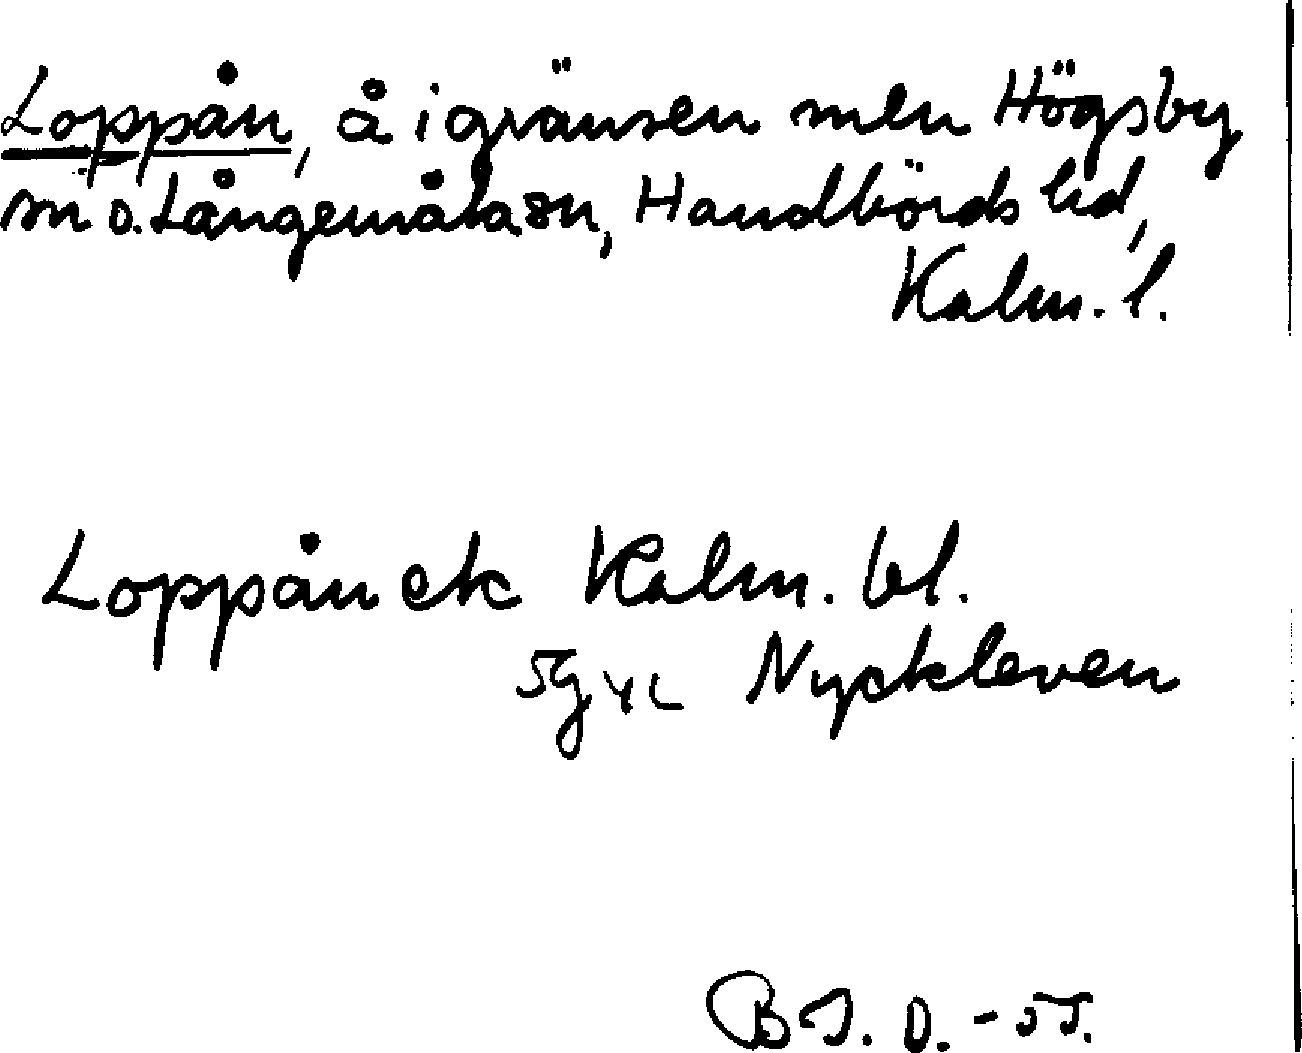 Loppån, å i gränsen mln Högsby
sn o. Långemåla sn, Handbörds hd,
Kalm. l.
Loppån ek Kalm. bl.
5g Nyckleven